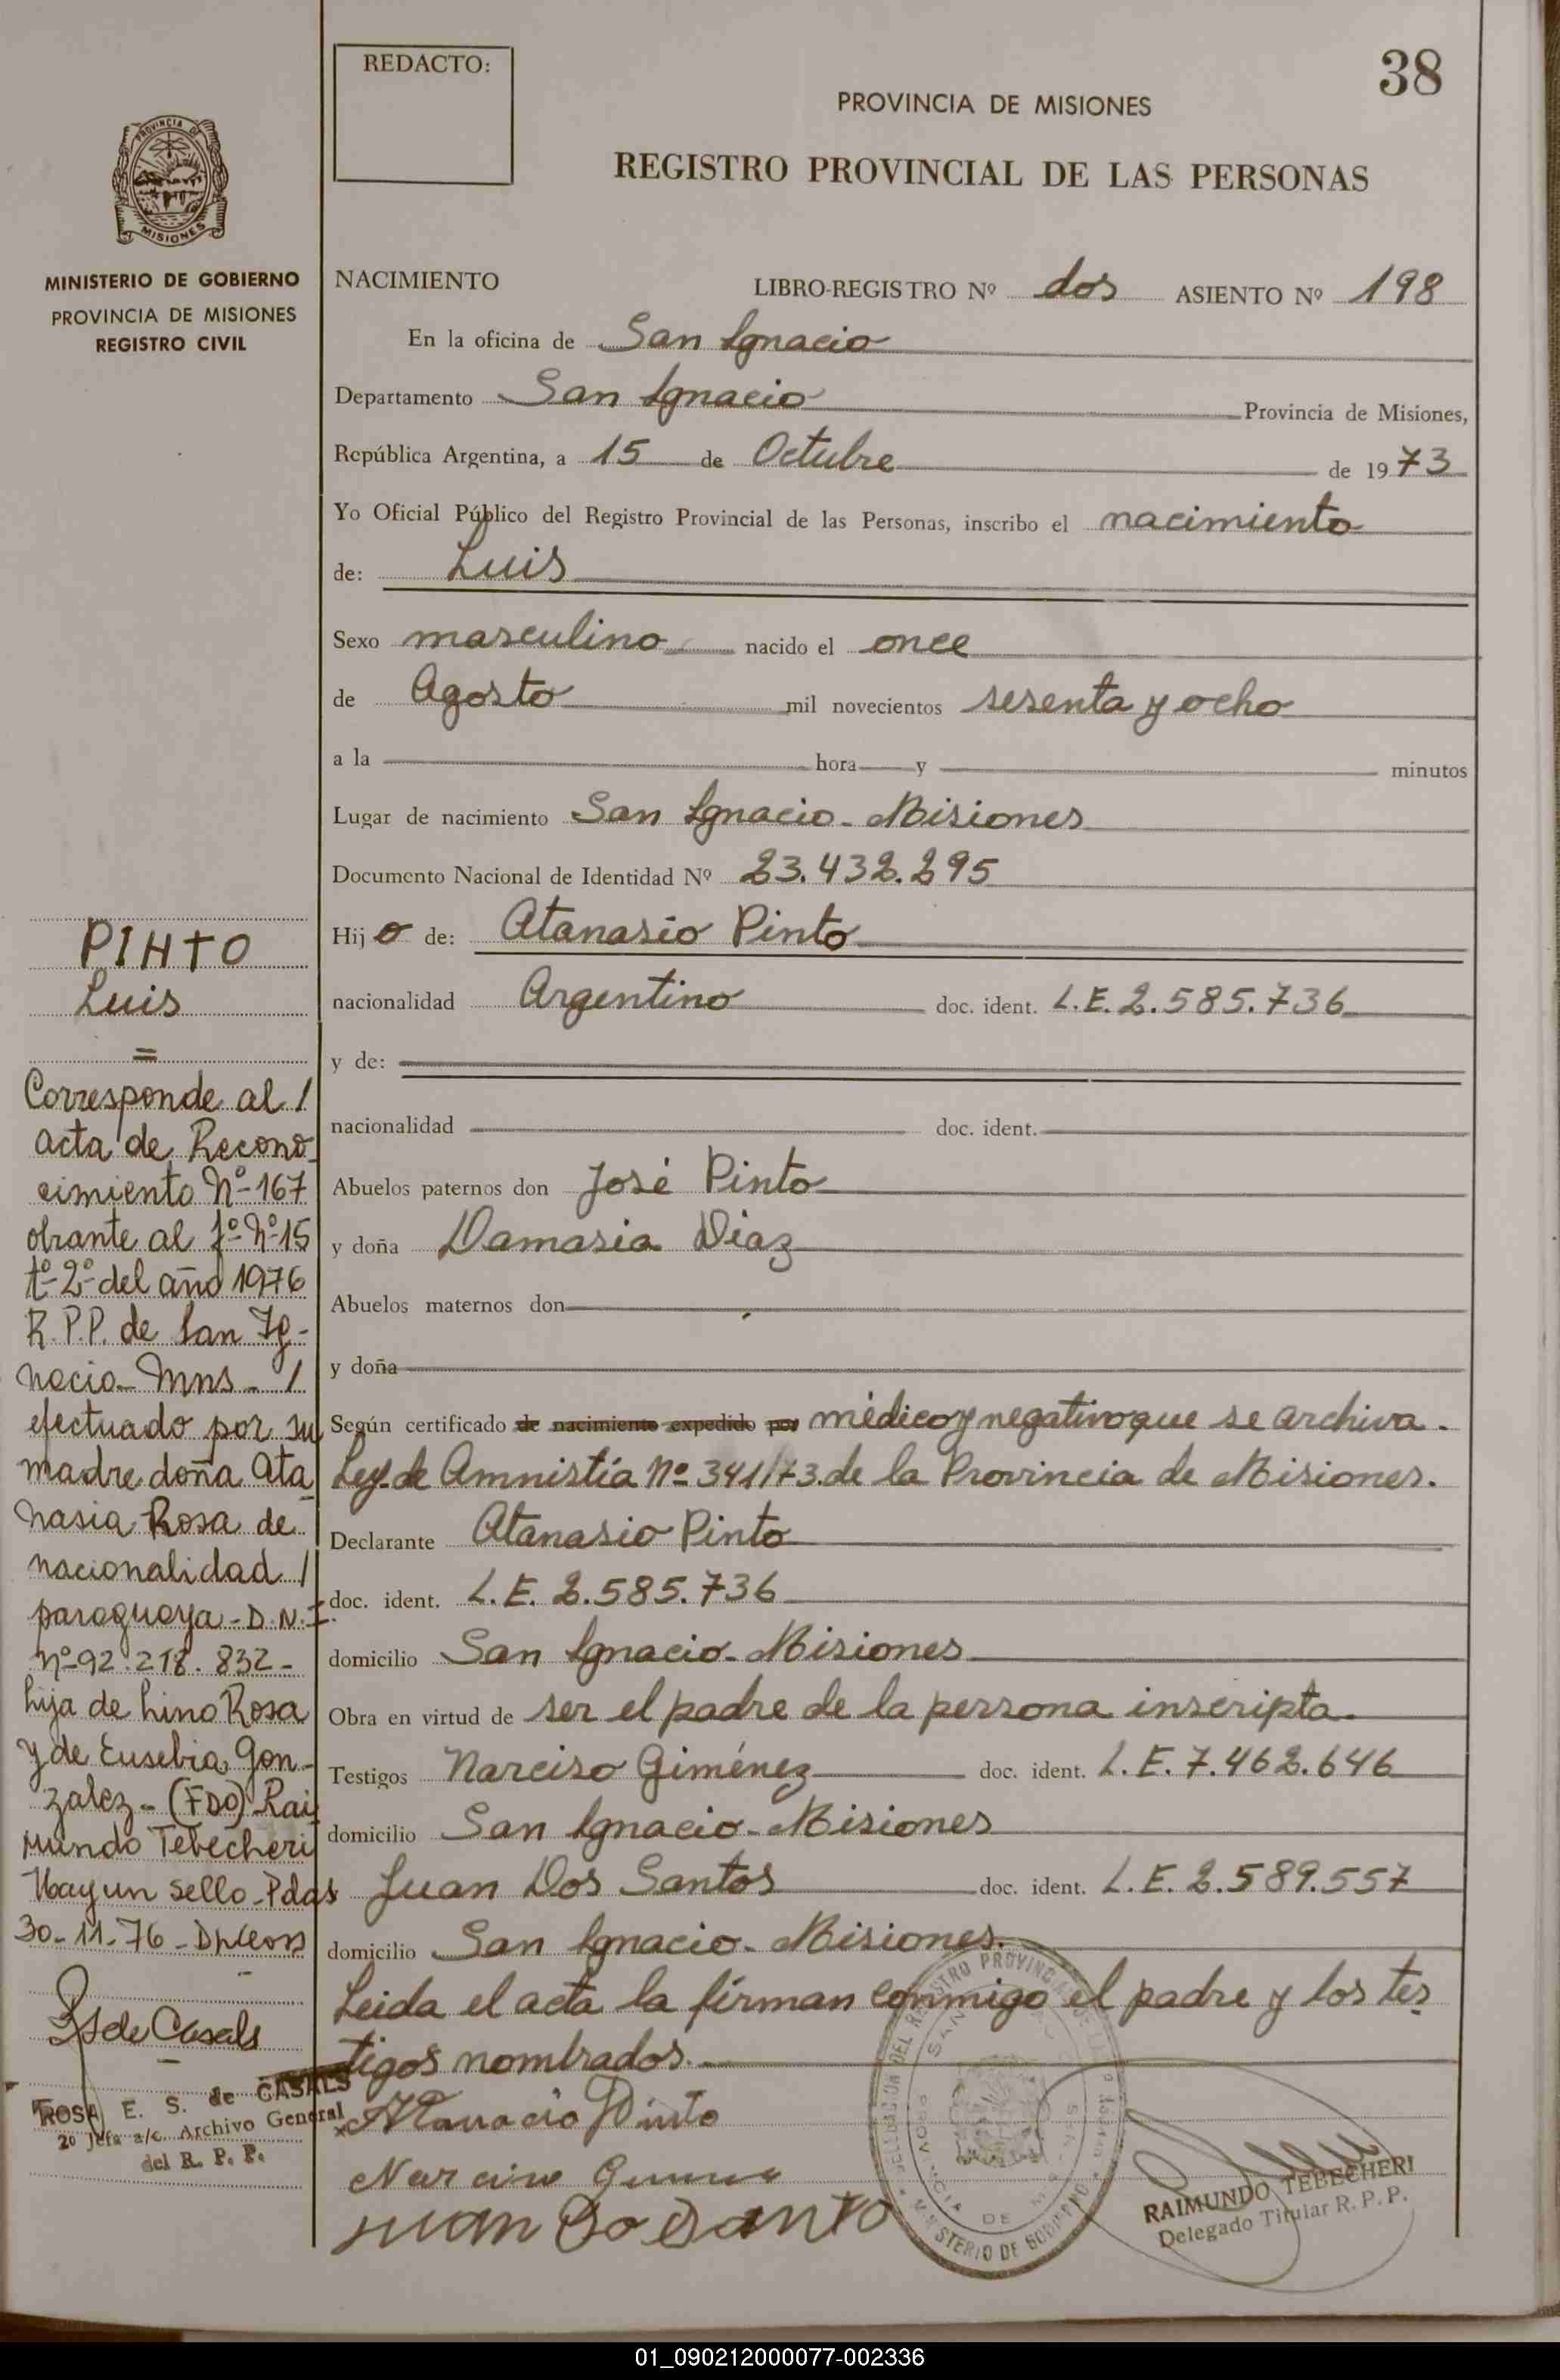 REDACTO:
38
PROVINCIA DE MISIONES
REGISTRO PROVINCIAL DE LAS PERSONAS
PROVINCIA DE
MISIONES
MINISTERIO DE GOBIERNO
PROVINCIA DE MISIONES
REGISTRO CIVIL
NACIMIENTO LIBRO-REGISTRO Nº dos ASIENTO Nº 198
En la oficina de San Ignacio
Departamento San Ignacio Provincia de Misiones,
República Argentina, a 15 de Octubre de 1973
Yo Oficial Público del Registro Provincial de las Personas, inscribo el nacimiento
de: Luis
Sexo masculino nacido el once
de Agosto mil novecientos sesenta y ocho
a la hora y minutos
Lugar de nacimiento San Ignacio - Misiones
Documento Nacional de Identidad Nº 23.432.295
Hijo de: Atanasio Pinto
nacionalidad Argentino doc. ident. L.E. 2.585.736
y de:
nacionalidad doc. ident.
Abuelos paternos don José Pinto
y doña Damasia Diaz
Abuelos maternos don
y doña
Según certificado de nacimiento expedido por médico y negativo que se archiva.
Ley de Amnistía Nº 341/73 de la Provincia de Misiones.
Declarante Atanasio Pinto
doc. ident. L.E. 2.585.736
domicilio San Ignacio - Misiones
Obra en virtud de ser el padre de la persona inscripta.
Testigos Narciso Giménez doc. ident. L.E. 7.462.646
domicilio San Ignacio - Misiones
Juan Dos Santos doc. ident. L.E. 2.589.557
domicilio San Ignacio - Misiones.
Leida el acta la firman conmigo el padre y los tes
tigos nombrados.
PINTO
Luis
=
Corresponde al /
acta de Recono-
cimiento Nº 167
obrante al fº Nº 15
tº 2º del año 1976
R.P.P. de San Ig-
nacio - Mns - /
efectuado por su
madre doña Ata
nasia Rosa de
nacionalidad /
paraguaya - D.N.I.
Nº 92.218.832 -
hija de Lino Rosa
y de Eusebia Gon-
zalez - (FDO) Rai
mundo Tebecheri
Hay un sello - Pdas
30-11-76 -
de Casals
ROSA E. S. de CASALS
2º Jefa a/c. Archivo General
del R. P. P.
Pinto
Juan Do Santo
RAIMUNDO TEBECHERI
Delegado Titular R. P. P.
01_090212000077-002336